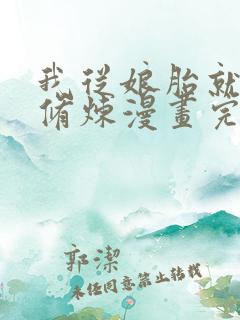 我從娘胎就
脩煉漫畫完
郭潔
未经同意禁止转载